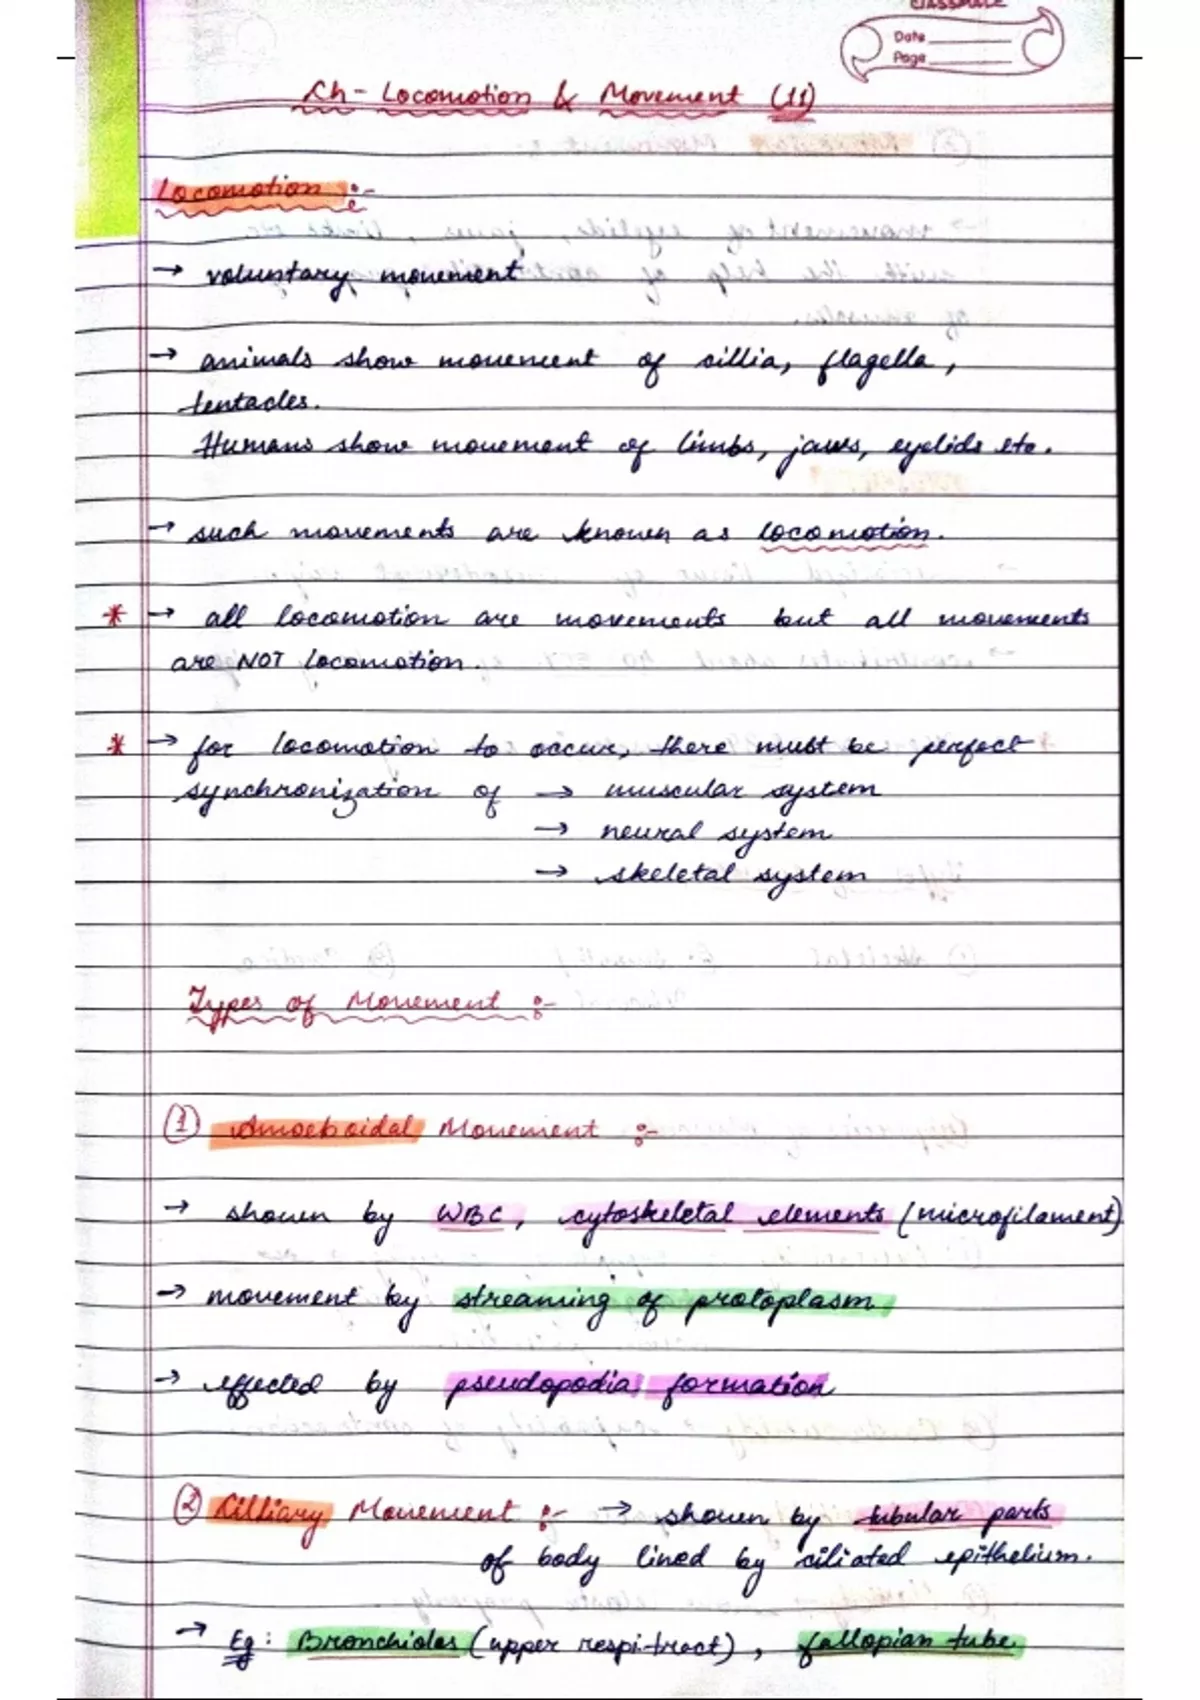 CLASSMATE
Date
Page
Ch - Locomotion & Movement (11)
Locomotion :-
→ voluntary movement
→ animals show movement of cillia, flagella,
tentacles.
Humans show movement of limbs, jaws, eyelids etc.
→ such movements are known as locomotion.
* → all locomotion are movements but all movements
are NOT locomotion.
* → for locomotion to occur, there must be perfect
synchronization of → muscular system
→ neural system
→ skeletal system
Types of Movement :-
① Amoeboidal Movement :-
→ shown by WBC, cytoskeletal elements (microfilament)
→ movement by streaming of protoplasm
→ effected by pseudopodia formation
② Cilliary Movement :- → shown by tubular parts
of body lined by ciliated epithelium.
→ Eg: Bronchioles (upper respi. tract), fallopian tube